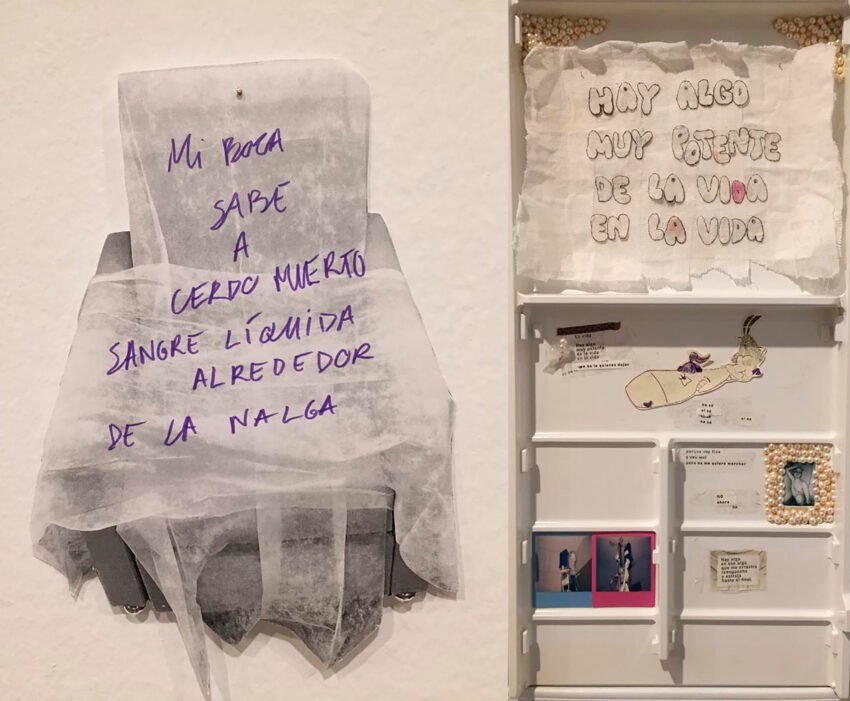 Mi BOCA
SABE
A
CERDO MUERTO
SANGRE LÍQUIDA
ALREDEDOR
DE LA NALGA
HAY ALGO
MUY POTENTE
DE LA VIDA
EN LA VIDA
La vida
Hay algo
muy potente
de la vida
en la vida
no te quieres dejar
porque voy fina
y veo mal
pero no me quiero marchar
NO
ahora
no
Hay algo
en ese algo
que me arrastra
y estruja
hasta el final.